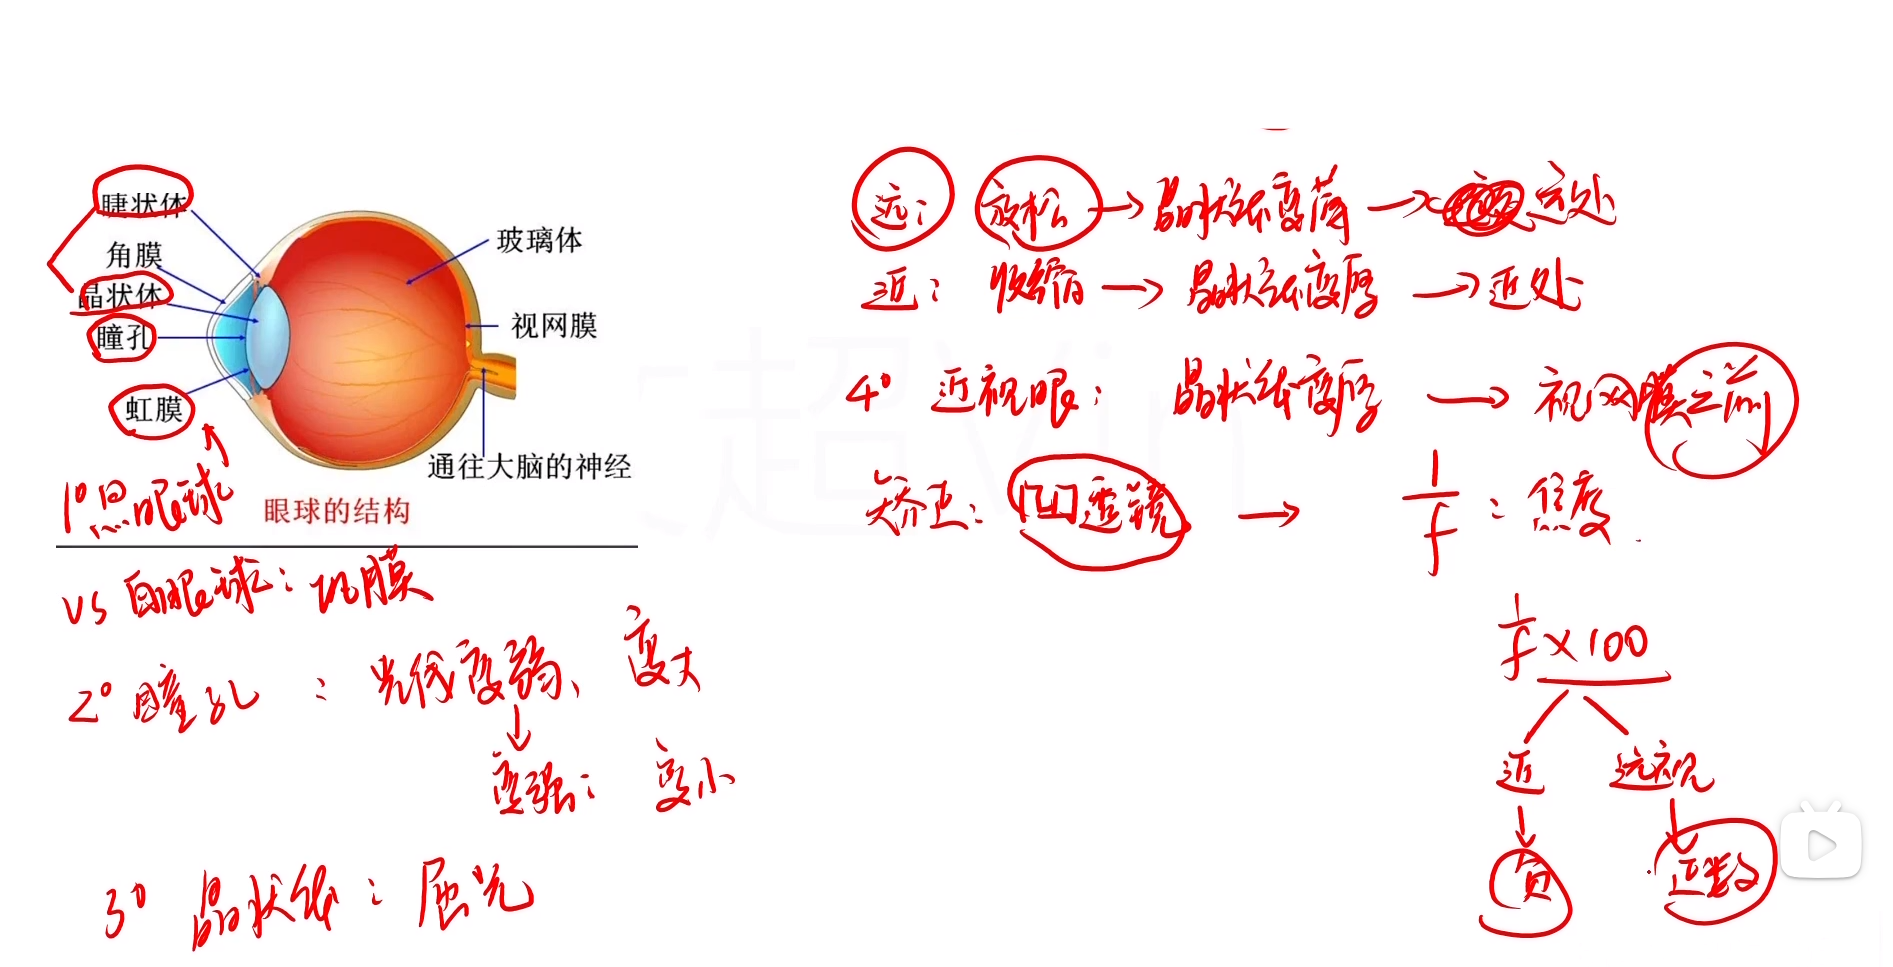 睫状体
角膜
晶状体
瞳孔
虹膜
玻璃体
视网膜
通往大脑的神经
眼球的结构
1° 黑眼球
vs 白眼球: 巩膜
2° 瞳孔: 光线变弱、变大
变强: 变小
3° 晶状体: 屈光
远: 放松 → 晶状体变薄 → 远处
近: 收缩 → 晶状体变厚 → 近处
4° 近视眼: 晶状体变厚 → 视网膜之前
矫正: 凹透镜 → 1/f : 焦度
1/f × 100
近 远视
负 正数